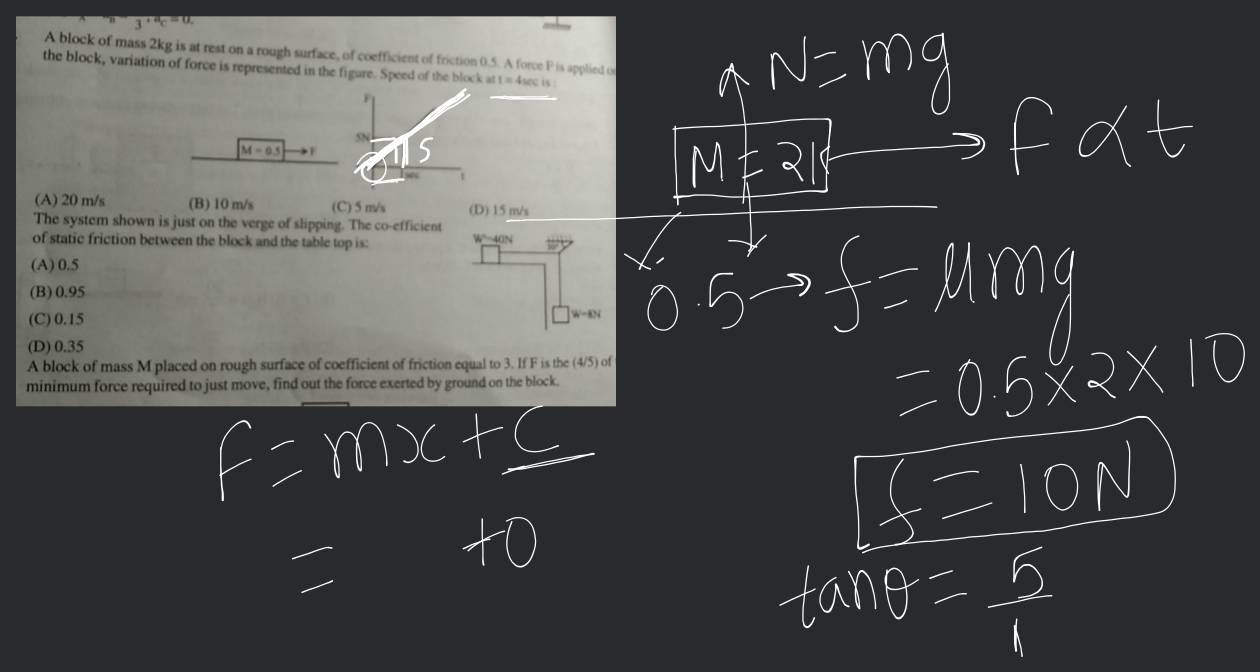 A block of mass 2kg is at rest on a rough surface, of coefficient of friction 0.5. A force F is applied
the block, variation of force is represented in the figure. Speed of the block at t = 4sec is :
F
5N
M = 0.5
F
5
t
(A) 20 m/s
(B) 10 m/s
(C) 5 m/s
(D) 15 m/s
The system shown is just on the verge of slipping. The co-efficient
of static friction between the block and the table top is:
(A) 0.5
(B) 0.95
(C) 0.15
(D) 0.35
W=40N
W=8N
A block of mass M placed on rough surface of coefficient of friction equal to 3. If F is the (4/5) of
minimum force required to just move, find out the force exerted by ground on the block.
N = mg
M = 2k
f α t
0.5 → f = μmg
= 0.5 × 2 × 10
f = 10N
tanθ = 5
1
F = mx + c
= +0